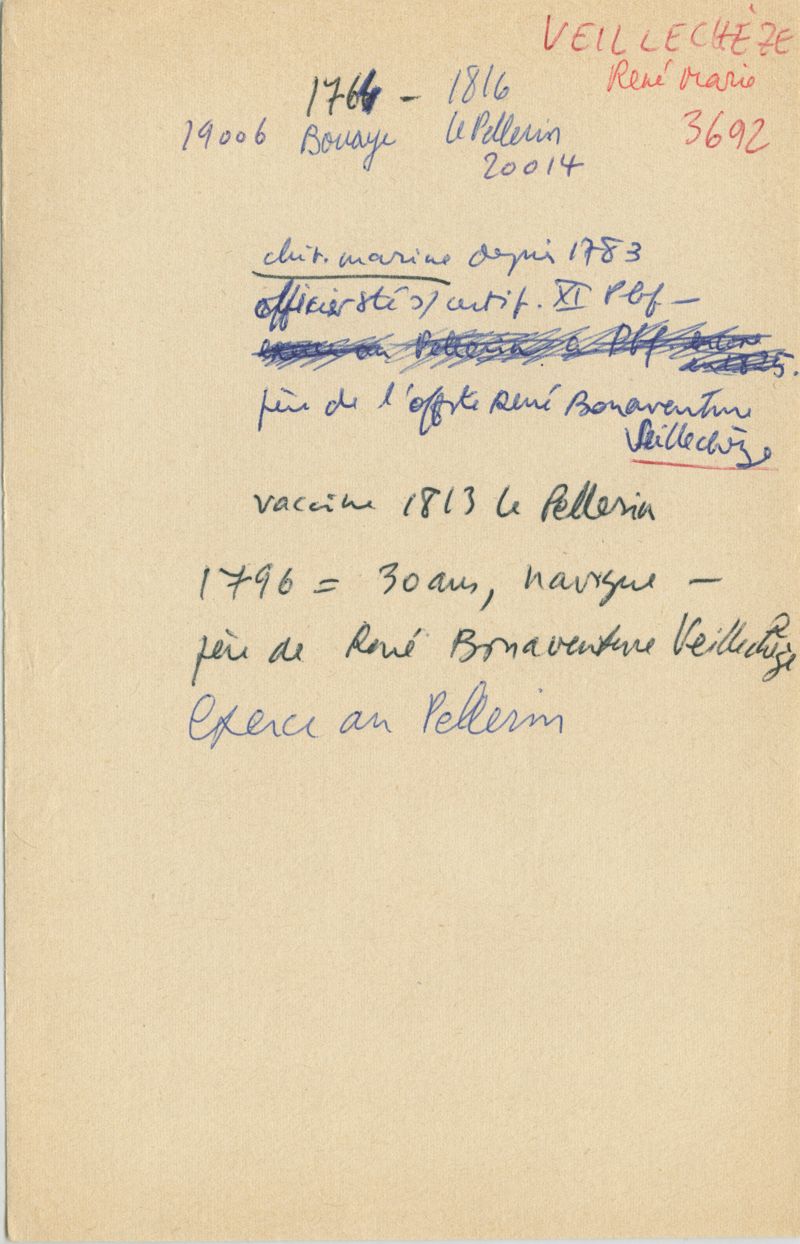 VEILLECHÈZE
René Marie
3692
1764 - 1816
19006 Bouaye le Pellerin
20014
chir. marine depuis 1783
officier sté s/ certif. XI Pbf -
exerce au Pellerin a Pbf encore
en 1825.
père de l'offste René Bonaventure
Veillechèze
vaccine 1813 le Pellerin
1796 = 30 ans, navigue -
père de René Bonaventure Veillechèze
Exerce au Pellerin